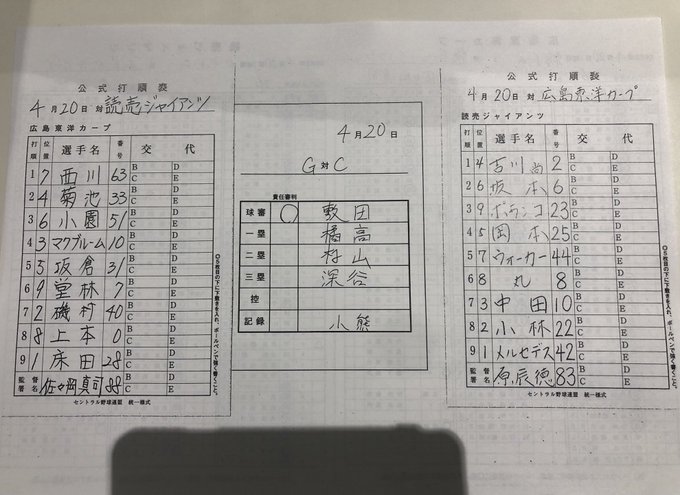 公式打順表
4月20日対 読売ジャイアンツ
広島東洋カープ
打順 位置 選手名 番号 交代
1 7 西川 63 B D C E
2 4 菊池 33 B D C E
3 6 小園 51 B D C E
4 3 マクブルーム 10 B D C E
5 5 坂倉 31 B D C E
6 9 堂林 7 B D C E
7 2 磯村 40 B D C E
8 8 上本 0 B D C E
9 1 床田 28 B D C E
監督署名 佐々岡真司 88 B D C E
セントラル野球連盟 統一様式
◎5枚目の下に下敷きを入れ、ボールペンで強く書くこと。
4月20日
G対C
責任審判
球審 ○ 敷田
一塁 橘高
二塁 村山
三塁 深谷
控
記録 小熊
公式打順表
4月20日対 広島東洋カープ
読売ジャイアンツ
打順 位置 選手名 番号 交代
1 4 吉川尚 2 B D C E
2 6 坂本 6 B D C E
3 9 ポランコ 23 B D C E
4 5 岡本 25 B D C E
5 7 ウォーカー 44 B D C E
6 8 丸 8 B D C E
7 3 中田 10 B D C E
8 2 小林 22 B D C E
9 1 メルセデス 42 B D C E
監督署名 原辰徳 83 B D C E
セントラル野球連盟 統一様式
◎5枚目の下に下敷きを入れ、ボールペンで強く書くこと。